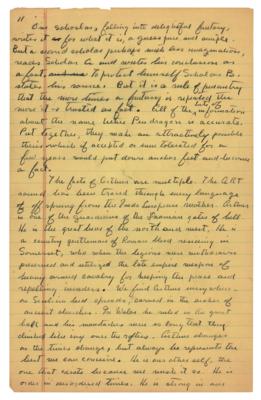 11
One scholar, falling into delightful fantasy,
writes it for what it is, a guess pure and simple.
But a second scholar perhaps with less imagination,
reads Scholar 1 and writes his conclusion as
a fact, to protect himself Scholar Bo.
states his source. But it is a rule of pedantry
that the more times a fantasy is repeated the
more it is trusted as fact. All of the information
about the name Pendragon is accurate.
Put together, they make an attractively possible
thesis which if accepted or even tolerated for a
few years would put down anchor feet and become
a fact.
The facts of Arthur are multiple. The ART
sound has been traced through every language
off spring from the Indo European mother. Arthur
is one of the Guardians of the Taaman gates of hell.
He is the great bear of the north and west. He is
a country gentleman of Roman blood residing in
Somerset, who when the legions were withdrawn
possessed and utilized the late empire weapon of
heavy armed cavalry for keeping the peace and
repelling invaders. We find Arthur everywhere
on Sicilian bed spreads, carved in the arches of
ancient churches. In Wales he ruled in the great
hall and his mustaches were so long that they
climbed like ivy over the rafters. Arthur changes
as the times change, but always he represents the
best we can conceive. He is our other self, the
one that exists because we make it so. He is
order in disordered times. He is strong in our